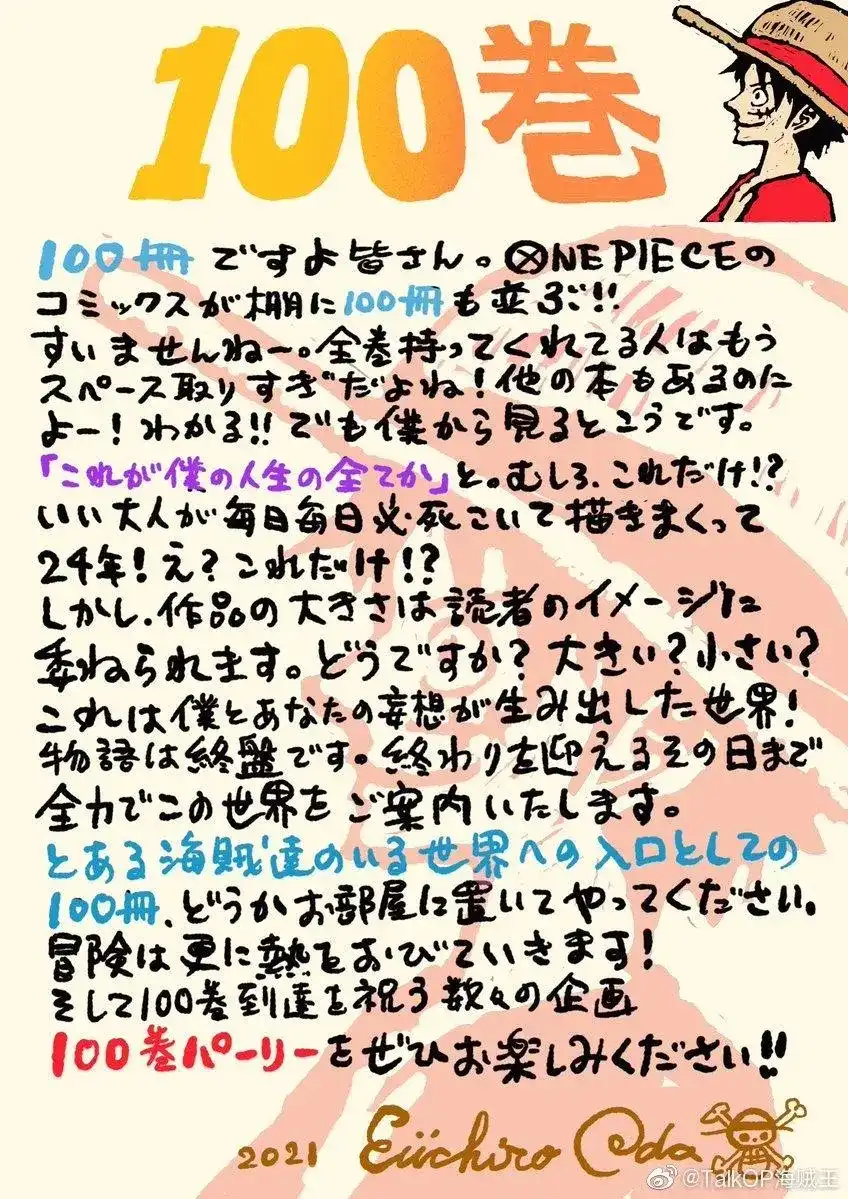 100巻
100冊ですよ皆さん。ONE PIECEの
コミックスが棚に100冊も並ぶ!!
すいませんねー。全巻持ってくれてる人はもう
スペース取りすぎだよね!他の本もあるのに
よー!わかる!!でも僕から見るとこうです。
「これが僕の人生の全てか」と。むしろ、これだけ!?
いい大人が毎日毎日必死こいて描きまくって
24年!え?これだけ!?
しかし、作品の大きさは読者のイメージに
委ねられます。どうですか?大きい?小さい?
これは僕とあなたの妄想が生み出した世界!
物語は終盤です。終わりを迎えるその日まで
全力でこの世界をご案内いたします。
とある海賊達のいる世界への入口としての
100冊、どうかお部屋に置いてやってください。
冒険は更に熱をおびていきます!
そして100巻到達を祝う数々の企画
100巻パーリーをぜひお楽しみください!!
2021 Eiichiro Oda
@TalkOP海贼王